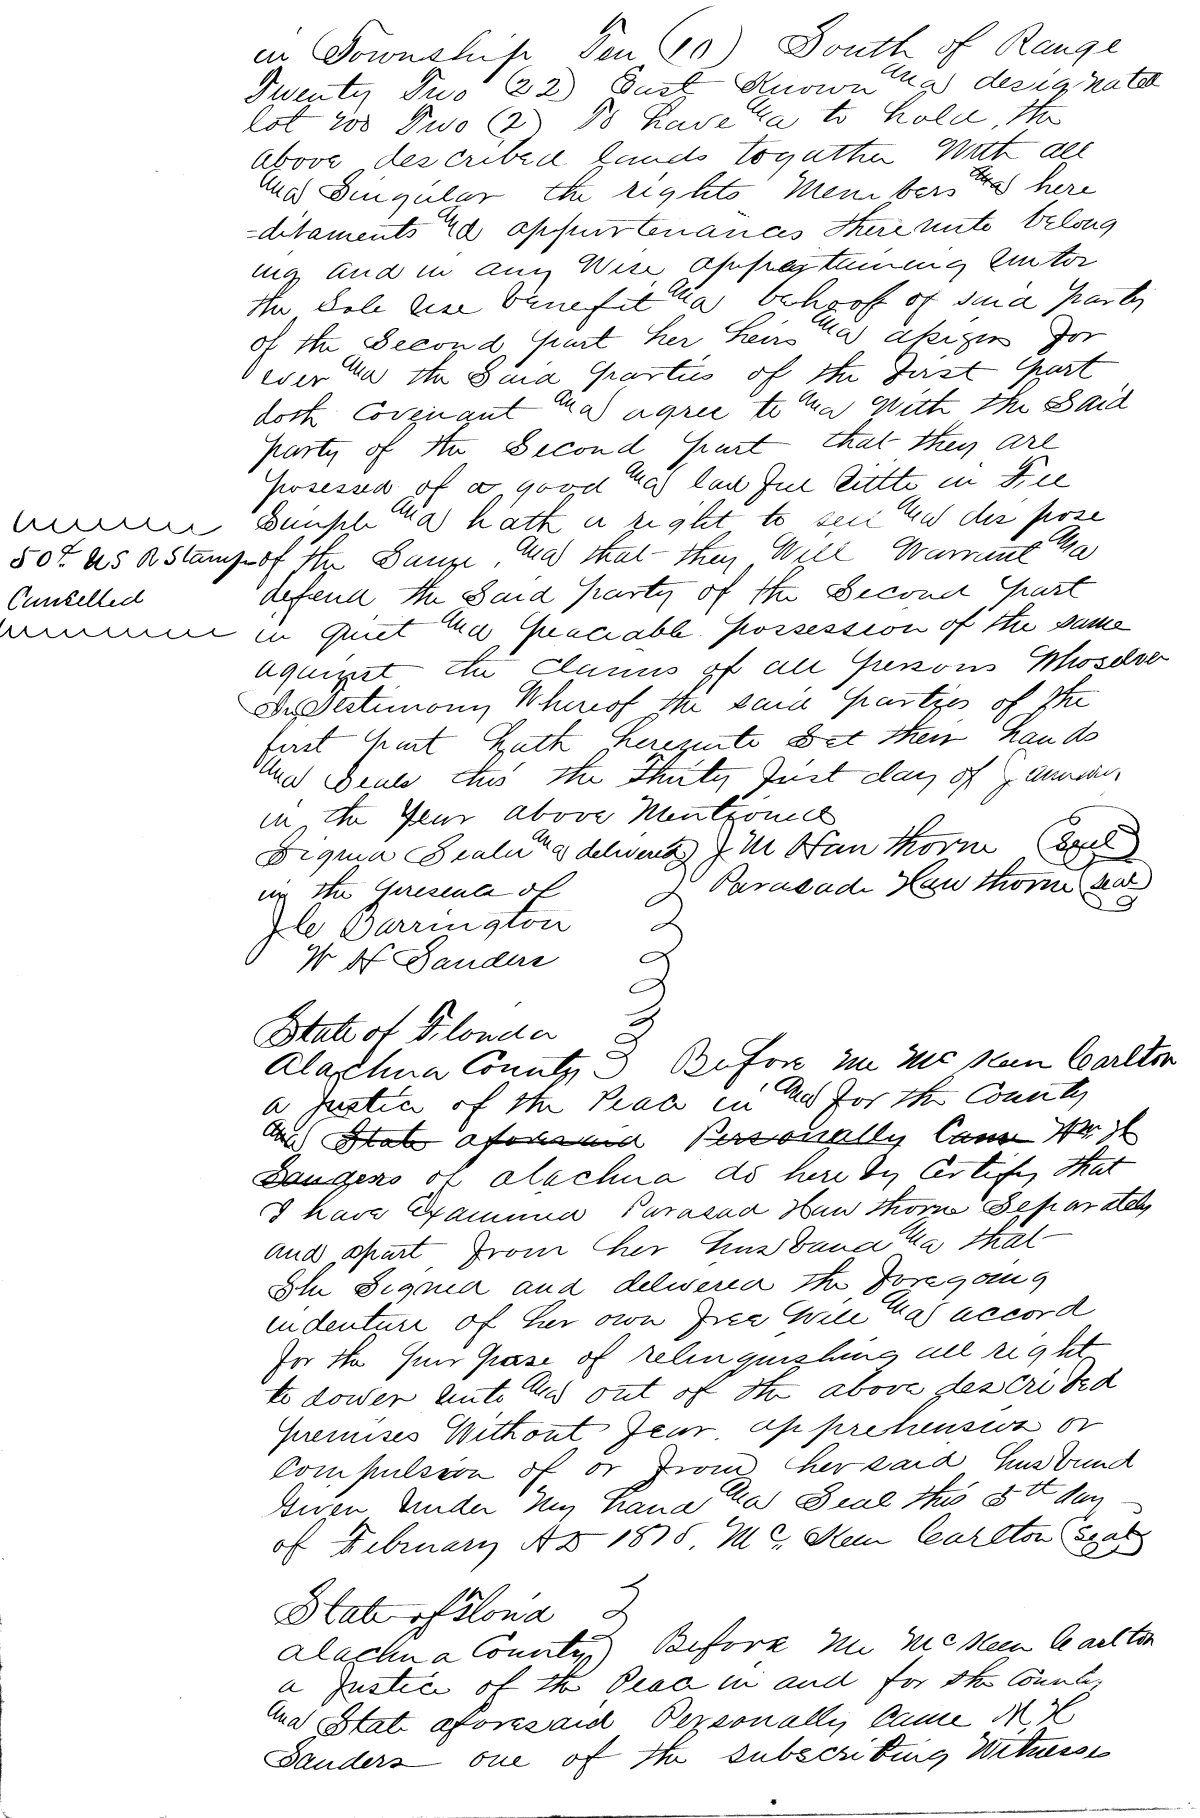 in Township Ten (10) South of Range
Twenty Two (22) East Known and designated
lot no Two (2) To have and to hold, the
above described lands togather With all
and Singular the rights Members and here
=ditaments and appurtenances thereunto belong
ing and in any Wise appertaining unto
the Sole Use benefit and behoof of said party
of the Second part her heirs and assigns for
ever and the Said parties of the first part
doth Covenant and agree to and With the Said
party of the Second part that they are
posessed of a good and lawful tittle in Fee
Simple and hath a right to sell and dispose
50ct US R Stamp of the Same, and that they Will Warrant and
Cancelled defend the Said party of the Second part
in quiet and peaceable possession of the same
against the claims of all persons Whosoever
In Testimony Whereof the said parties of the
first part hath hereunto Set their hands
and Seals this the Thirty first day of January
in the Year above Mentioned
Signed Sealed and delivered J M Hawthorne (Seal)
in the presence of Parasade Hawthorne (seal)
Barrington
W H Sanders
State of Florida
Alachua County Before Me McKeen Carlton
a Justice of the Peace in and for the County
and State aforesaid Personally Came Wm H
Sanders of Alachua do here by Certify that
I have Examined Parasad Hawthorne Separately
and apart from her husband and that
She Signed and delivered the foregoing
indenture of her own free Will and accord
for the purpose of relinquishing all right
to dower unto and out of the above described
premises Without fear, apprehension or
Compulsion of or from her said husband
Given Under My hand and Seal this 5th day
of February AD 1875. Mc. Keen Carlton (seal)
State of Florida
Alachua County) Before Me McKeen Carlton
a Justice of the Peace in and for the County
and State aforesaid Personally Came W, H
Sanders one of the subscribing Witnesses